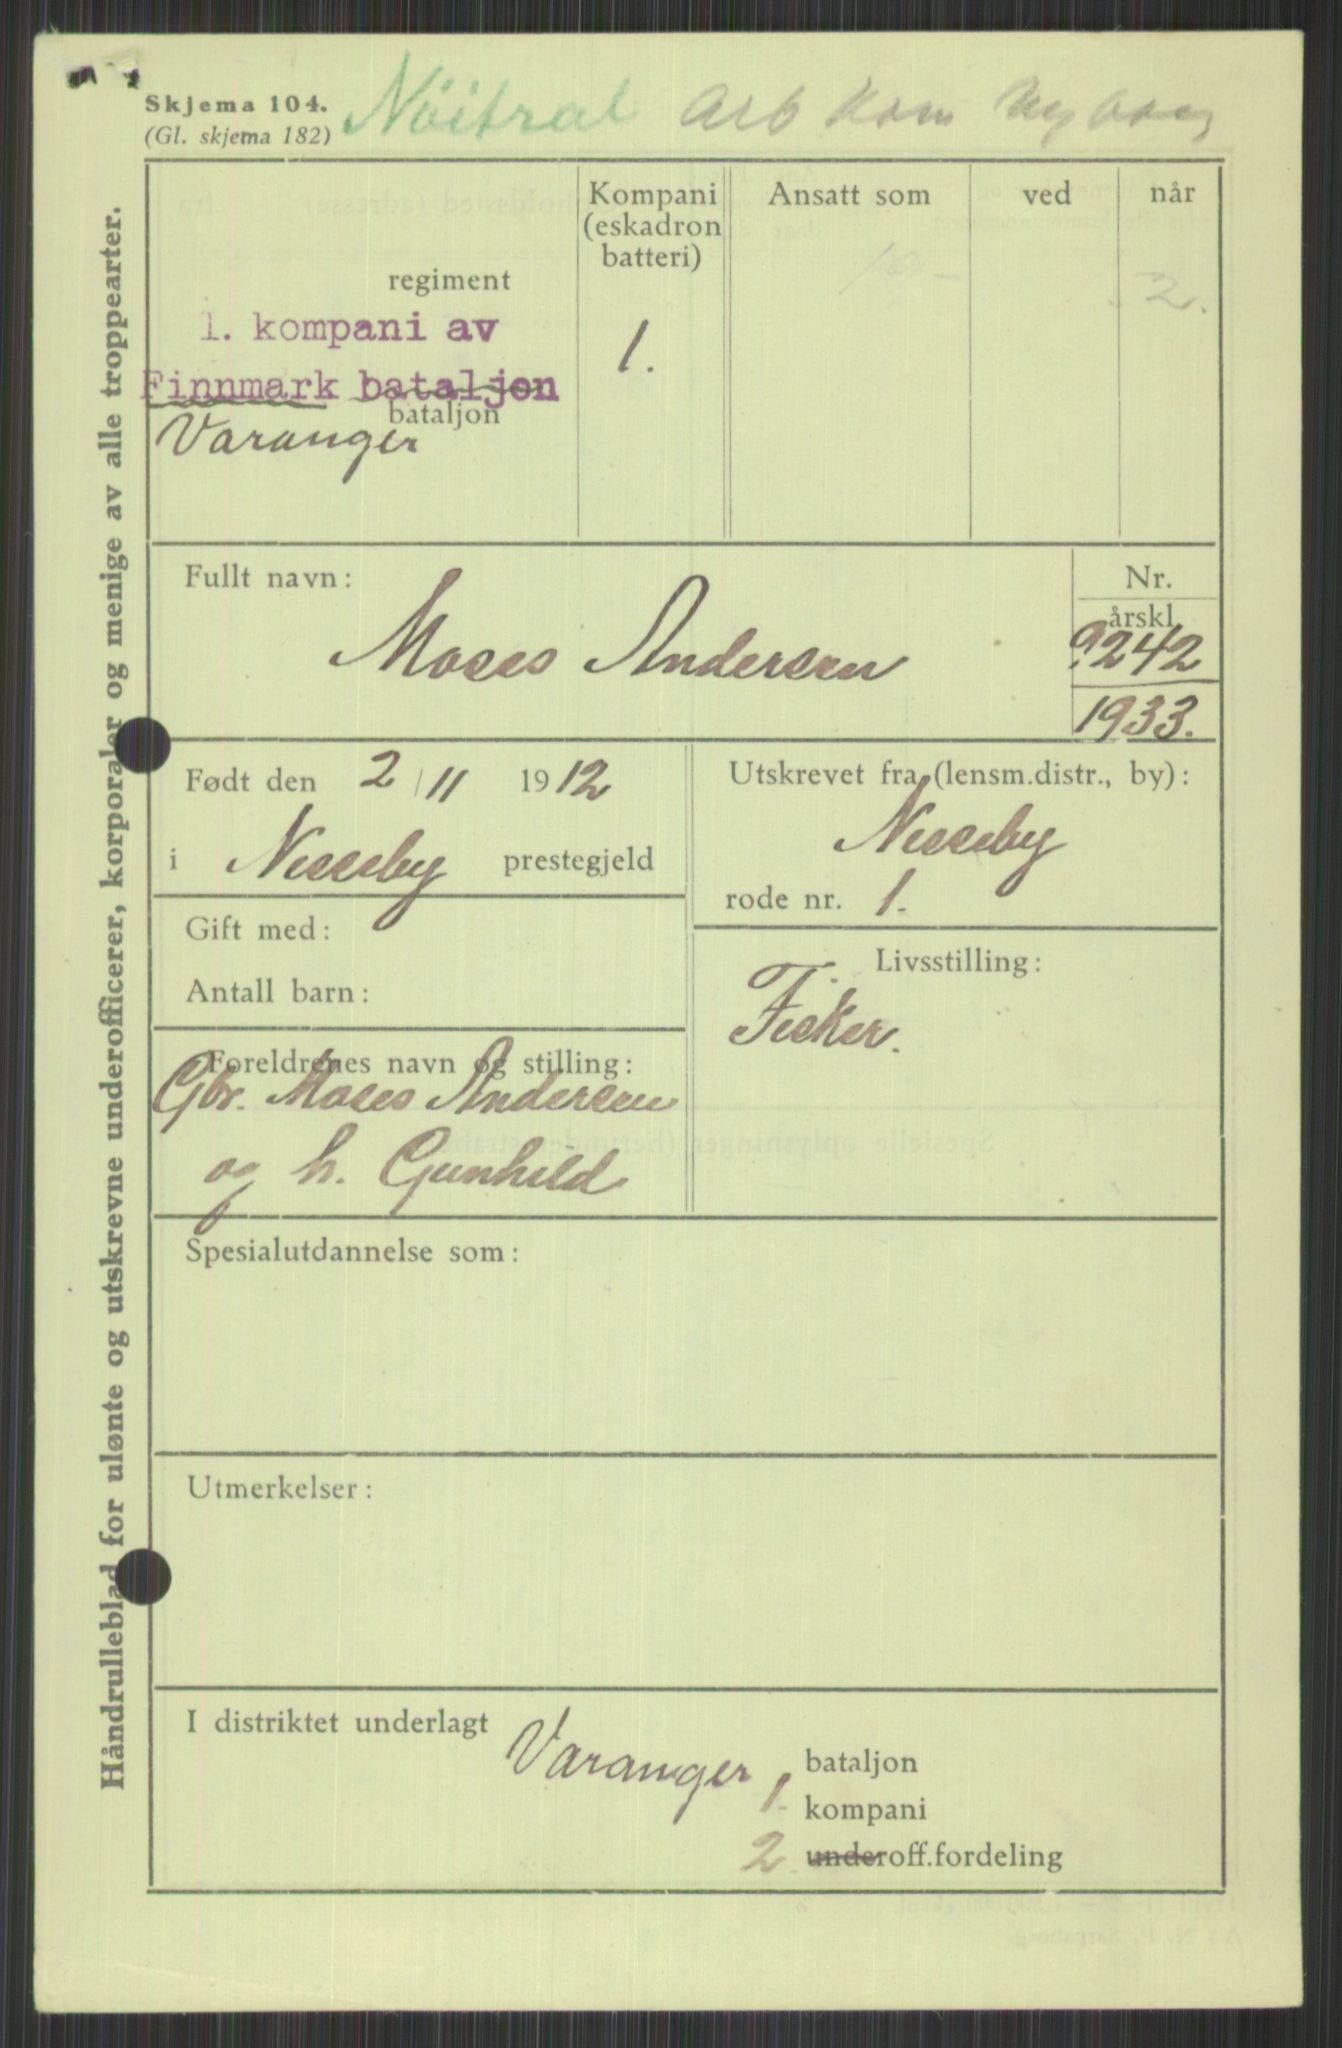 Skjema 104.
(Gl. skjema 182)
Nöitral Arb Kom Nyborg
Håndrulleblad for ulønte og utskrevne underofficerer, korporaler og menige av alle troppearter.
Kompani (eskadron batteri)
Ansatt som
ved
når
regiment
1. kompani av
Finnmark bataljon
bataljon
Varanger
1.
2.
Fullt navn:
Moses Andersen
Nr.
årskl.
242
1933.
Født den 2/11 1912
i Nesseby prestegjeld
Utskrevet fra (lensm.distr., by):
Nesseby
rode nr. 1.
Gift med:
Antall barn:
Livsstilling:
Fisker.
Foreldrenes navn og stilling:
Gbr. Moses Andersen
og h. Gunhild
Spesialutdannelse som:
Utmerkelser:
I distriktet underlagt
Varanger bataljon
1. kompani
2 underoff.fordeling